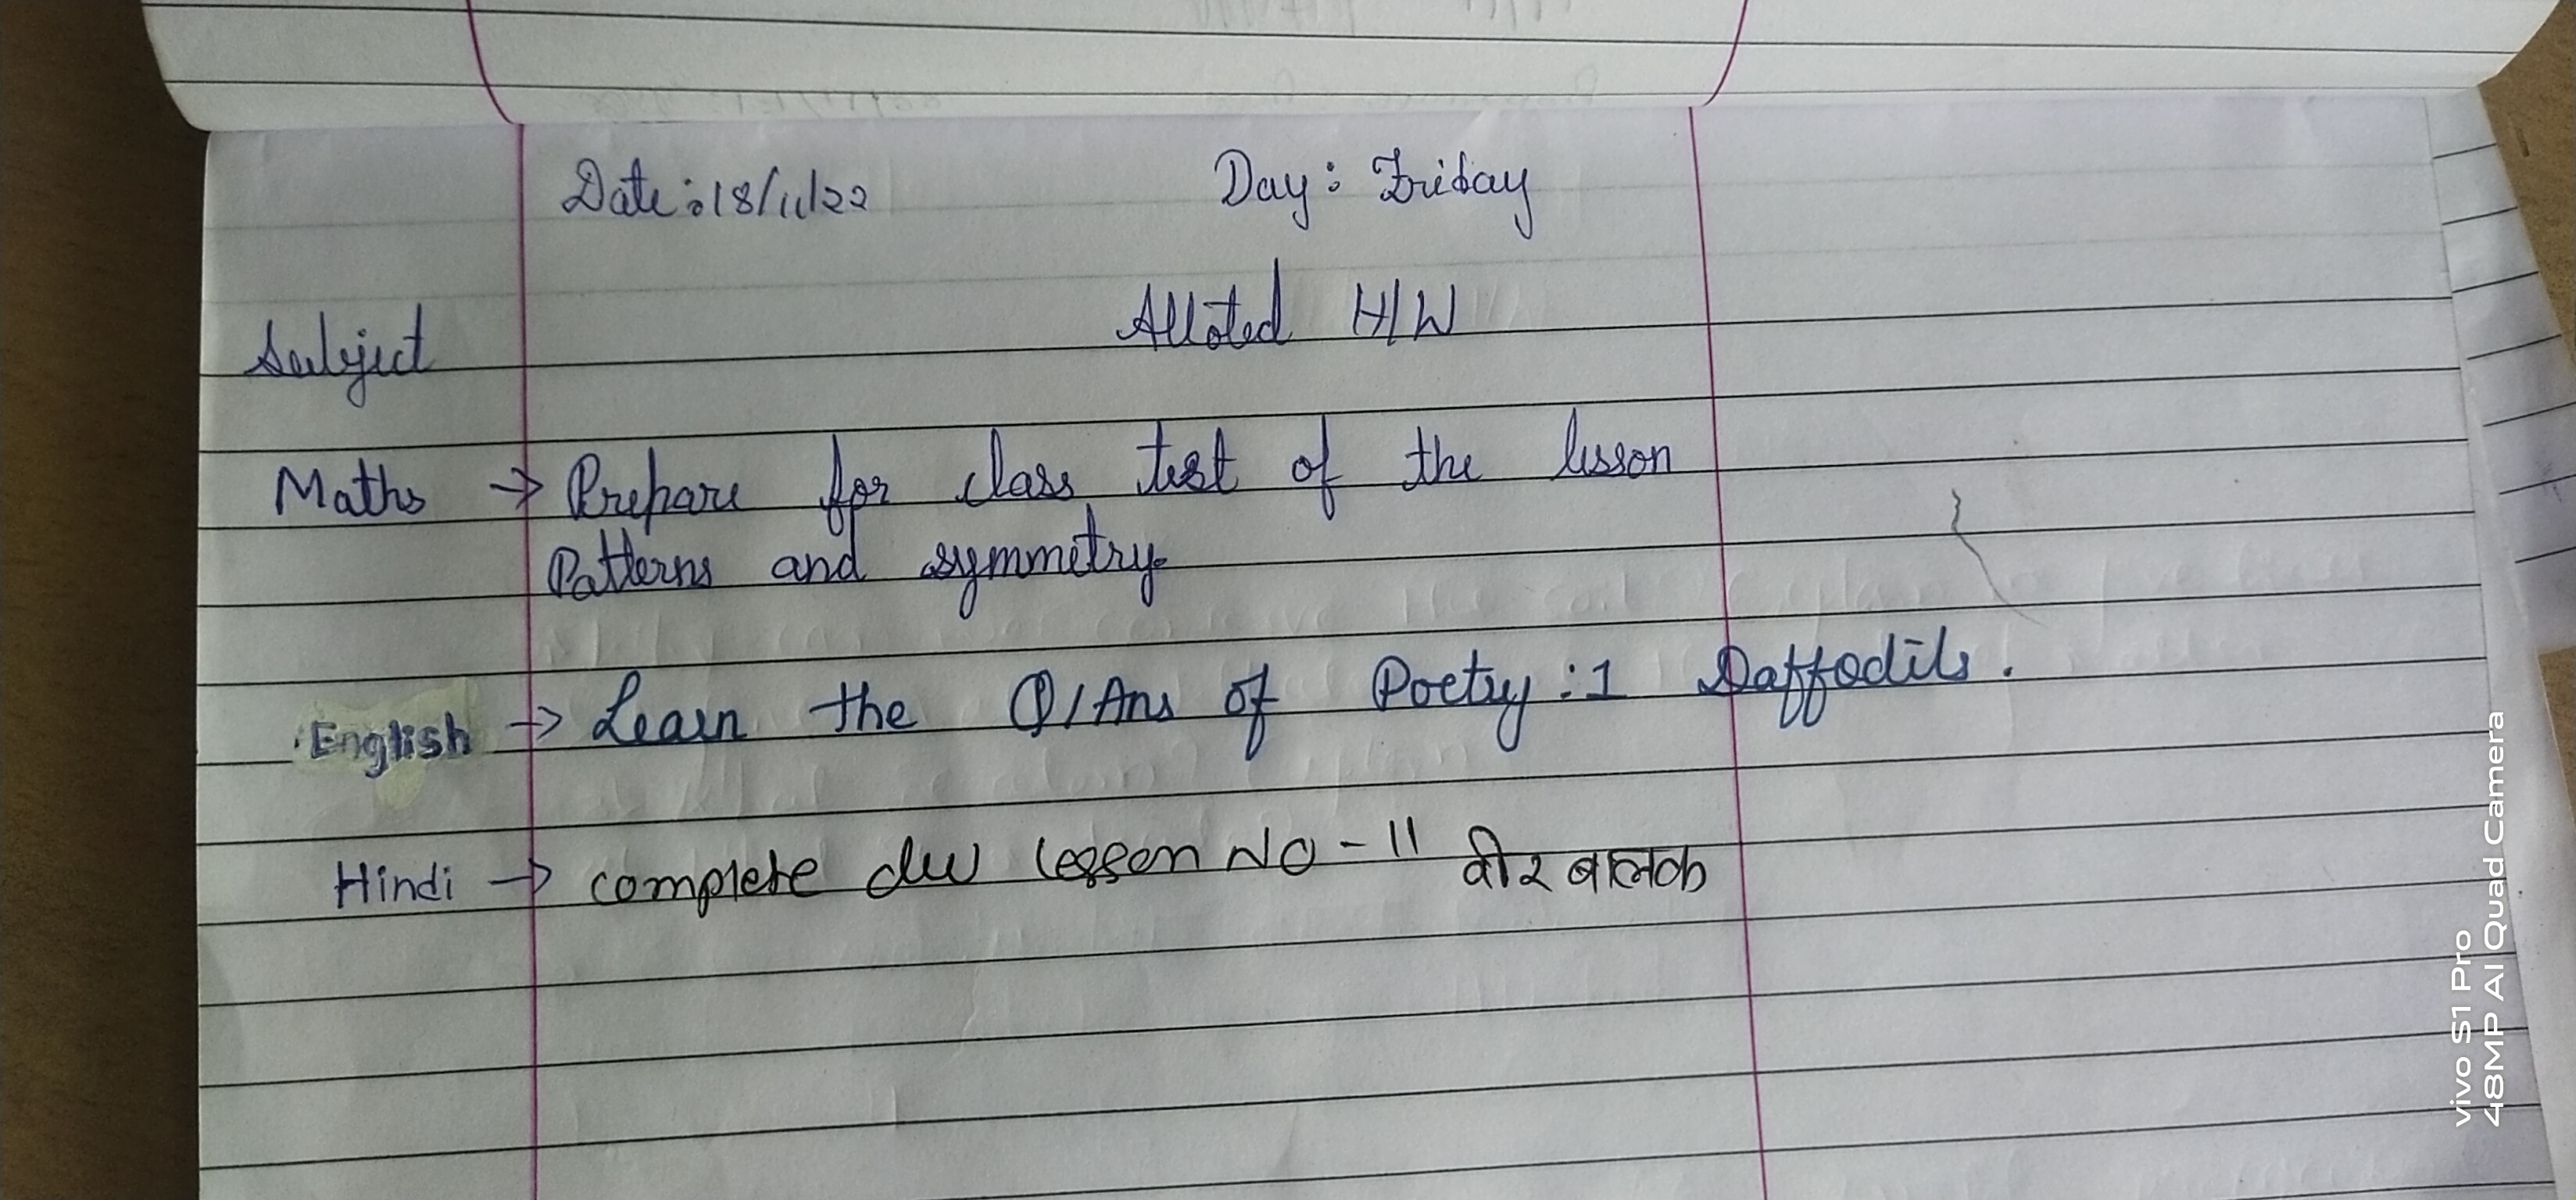 Date : 18/11/22 Day : Friday
Subject Alloted H/W
Maths → Prepare for class test of the lesson
Patterns and symmetry.
English → Learn the Q/Ans of Poetry : 1 Daffodils.
Hindi → complete cw lesson NO - 11 वीर बालक
vivo S1 Pro
48MP AI Quad Camera